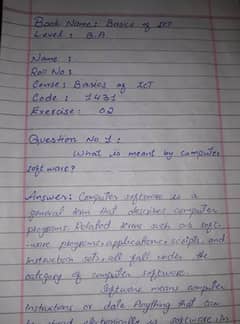 Book Name: Basics of ICT
Level: B.A.
Name :
Roll No :
Course: Basics of ICT
Code : 1431
Exercise: 02
Question No 1:
What is meant by computer
software?
Answer: Computer software is a
general term that describes computer
programs. Related terms such as soft-
ware programs, applications, scripts, and
instruction sets all fall under the
category of computer software.
Software means computer
Instructions or data. Anything that can
be stored electronically is software, in